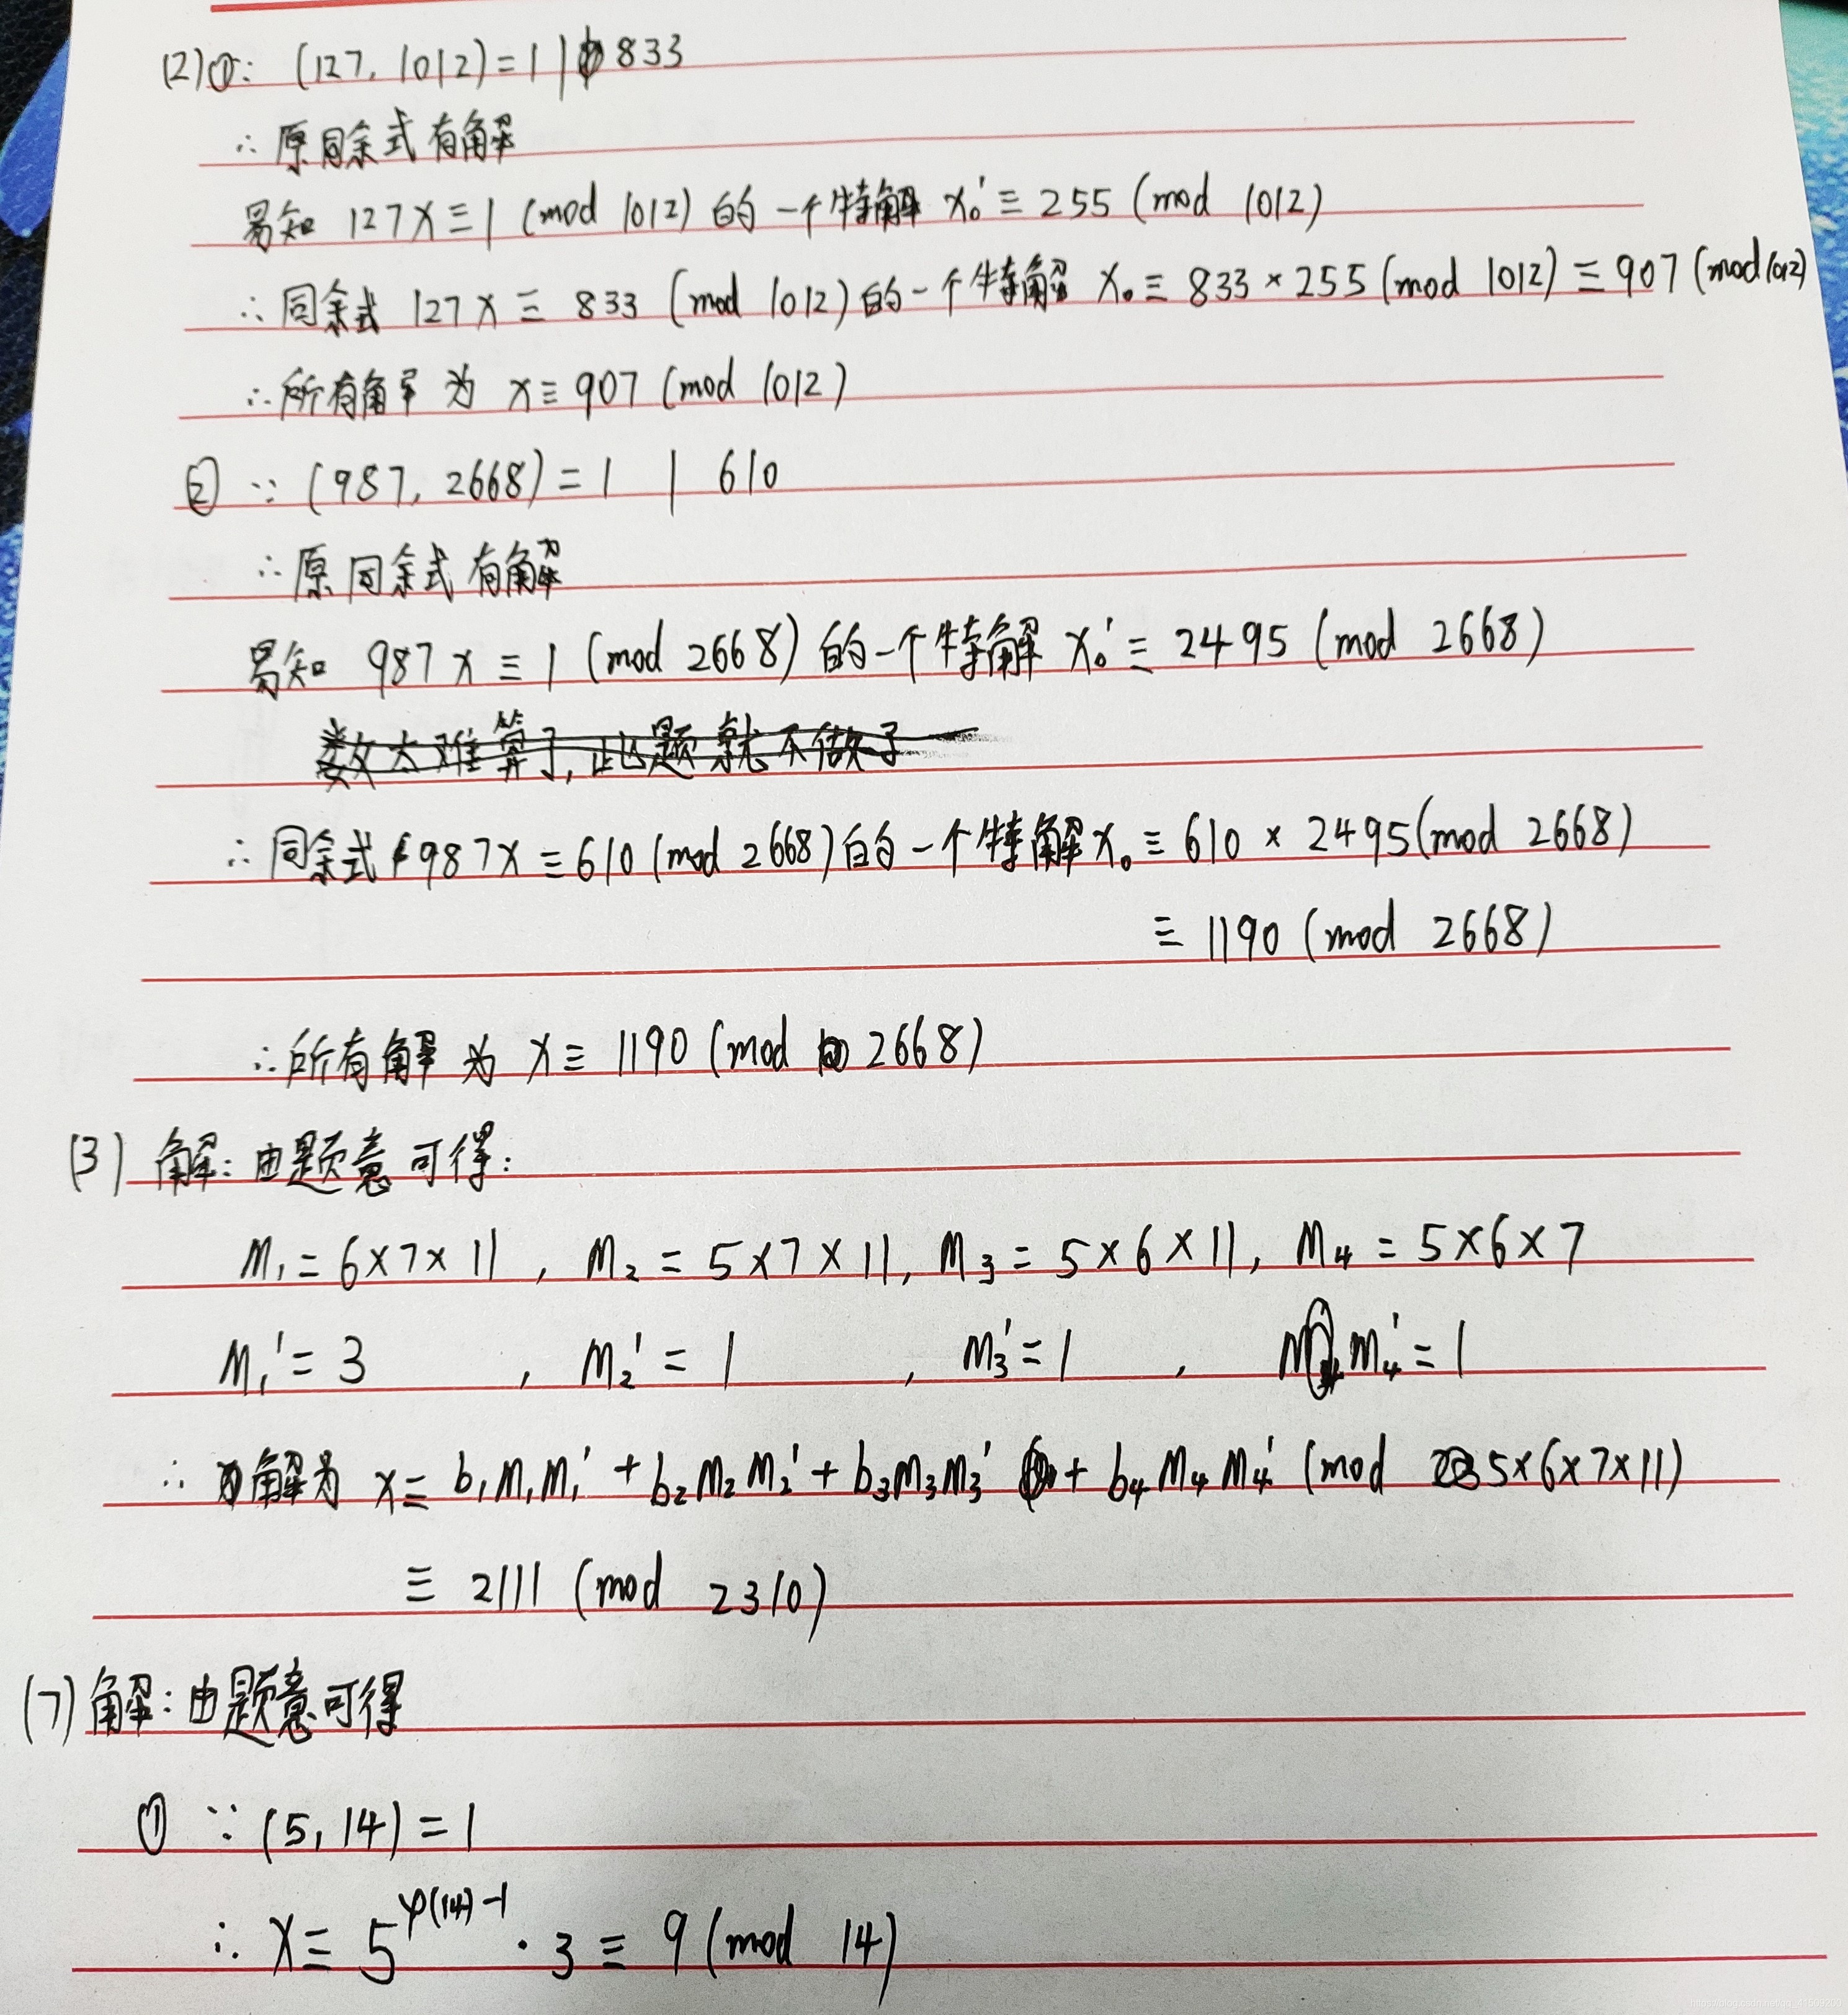 (2)①∵ (127, 1012)=1 | 833
∴原同余式有解
易知 127x≡1 (mod 1012) 的一个特解 x₀'≡255 (mod 1012)
∴同余式 127x≡833 (mod 1012)的一个特解 x₀≡833×255(mod 1012)≡907(mod 1012)
∴所有解为 x≡907 (mod 1012)
② ∵ (987, 2668)=1 | 610
∴原同余式有解
易知 987x≡1 (mod 2668)的一个特解 x₀'≡2495 (mod 2668)
数太难算了,此题就不做了
∴同余式 987x≡610(mod 2668)的一个特解x₀≡610×2495(mod 2668)
≡1190 (mod 2668)
∴所有解为 x≡1190 (mod 2668)
(3) 解:由题意可得:
M₁=6×7×11, M₂=5×7×11, M₃=5×6×11, M₄=5×6×7
M₁'=3, M₂'=1, M₃'=1, M₄'=1
∴解为 x≡b₁M₁M₁'+b₂M₂M₂'+b₃M₃M₃'+b₄M₄M₄' (mod 5×6×7×11)
≡2111 (mod 2310)
(7)解:由题意可得
① ∵(5,14)=1
∴ x≡5^φ(14)-1·3≡9(mod 14)